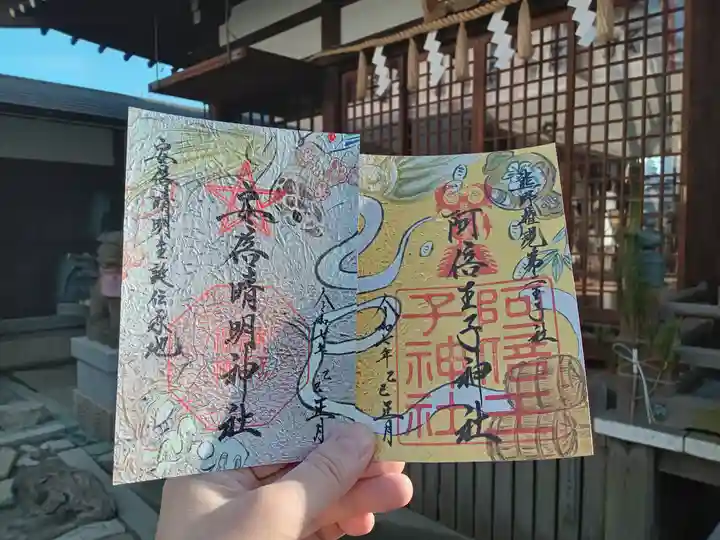 熊野権現第二王子社
阿倍王子神社
阿倍王
子神社
令和七年 乙巳 正月
安倍晴明生誕伝承地
安倍晴明神社
令和七年 乙巳 正月